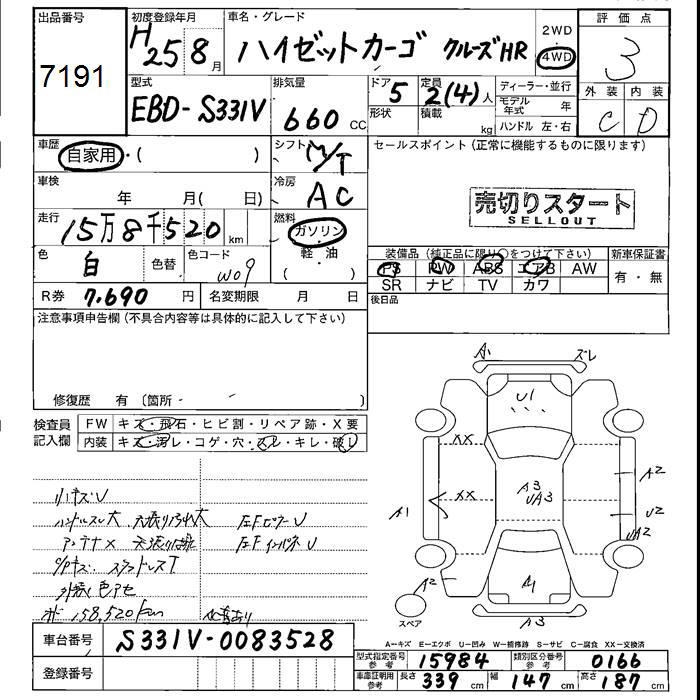 出品番号
7191
初度登録年月
H 25 8 月
車名・グレード
ハイゼットカーゴ クルーズHR
2WD
4WD
評価点
3
外装 内装
C D
型式
EBD-S331V
排気量
660 CC
ドア
5
形状
定員
2(4) 人
積載
kg
ディーラー・並行
モデル年式 年
ハンドル 左・右
車歴
自家用・( )
シフト
M/T
セールスポイント(正常に機能するものに限ります)
売切りスタート
SELLOUT
車検
年 月( 日)
冷房
AC
走行
15万8千520 km
燃料
ガソリン
軽・油
色
白
色替
色コード
W09
装備品(純正品に限り○をつけて下さい)
PS PW ABS エアB AW
SR ナビ TV カワ
新車保証書
有・無
R券
7.690 円
名変期限 月 日
後日品
注意事項申告欄(不具合内容等は具体的に記入して下さい)
修復歴 有 〔箇所・ 〕
検査員
記入欄
FW キズ・飛石・ヒビ割・リペア跡・X要
内装 キズ・汚レ・コゲ・穴・スレ・キレ・破レ
リヤキズU
アンテナX
外装色アセ
158,520km
A1 ズレ
U1
XX
XX
A3
UA3
A1
A2
U2
UA2
A2
A1
A3
スペア
A-キズ E-エクボ U-凹み W-補修跡 S-サビ C-腐食 XX-交換済
車台番号
S331V-0083528
登録番号
型式指定番号 参考 15984
類別区分番号 参考 0166
車庫証明用 参考 長さ 339 cm 幅 147 cm 高さ 187 cm